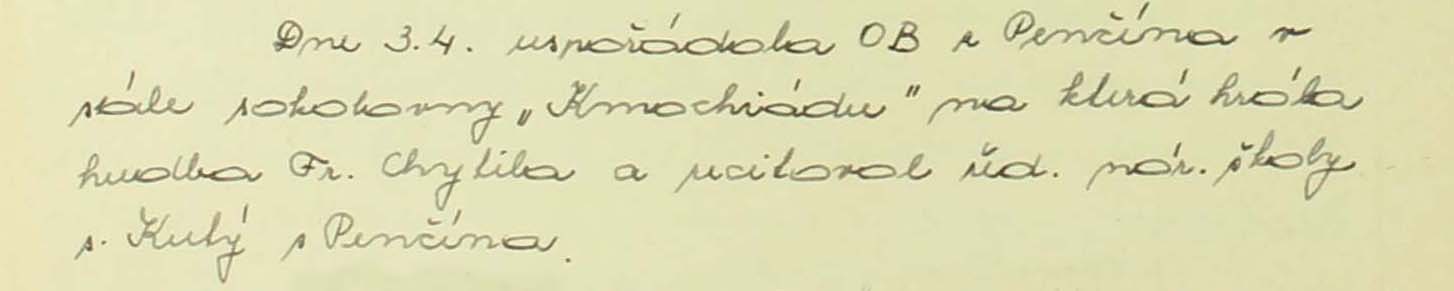 Dne 3.4. uspořádala OB z Penčína v
sále sokolovny „Kmochiádu" na která hrála
hudba Fr. Chytila a recitoval řed. nár. školy
s. Kutý z Penčína.